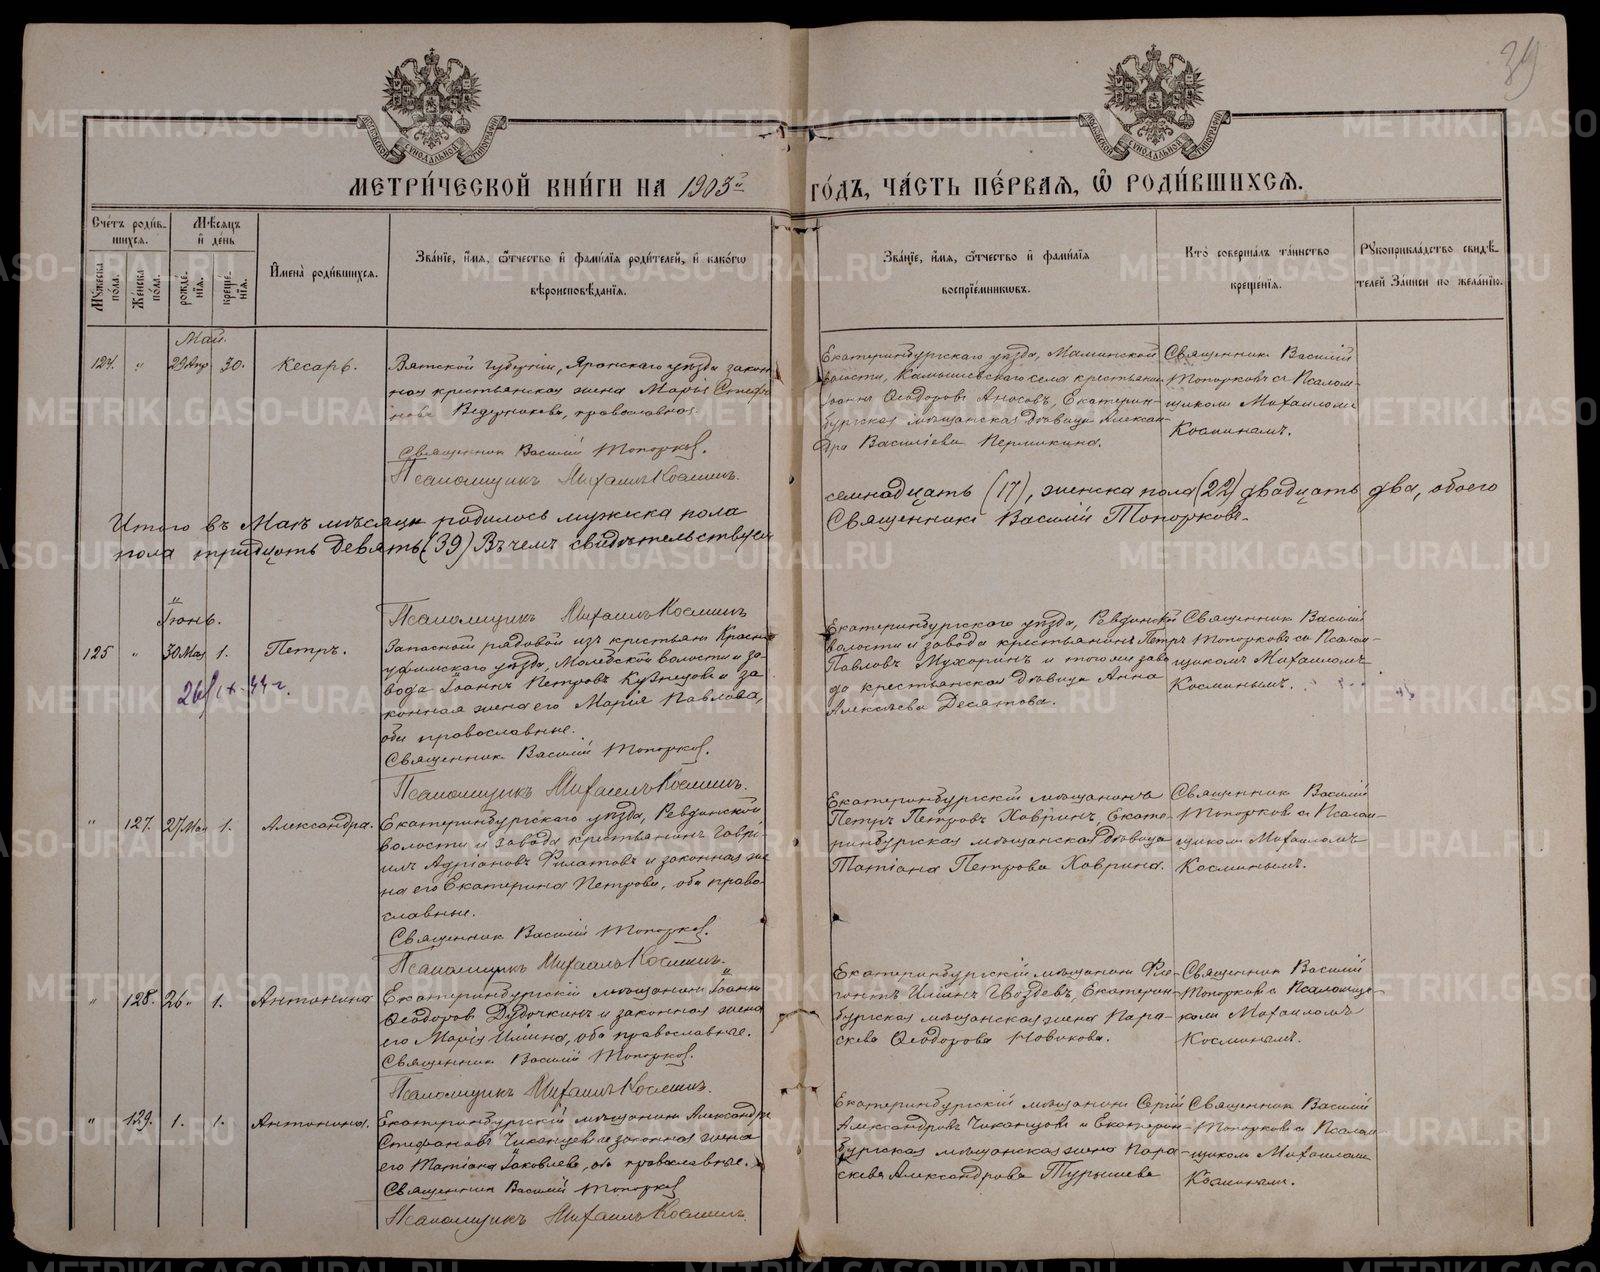 39
МЕТРИ́ЧЕСКОЙ КНИ́ГИ НА 1903й ГО́ДЪ, ЧА́СТЬ ПЕ́РВАЯ, Ѿ РОДИ́ВШИХСЯ.
Сче́тъ роди́вшихся.
Му́жеска по́ла.
Же́нска по́ла.
Мѣ́сяцъ и҆ де́нь
рожде́нїя.
креще́нїя.
И҆мена̀ роди́вшихся.
Зва́нїе, и҆́мя, ѻ҆́тчество и҆ фами́лїя роди́телей, и҆ како́гѡ
вѣроисповѣ́данїя.
Зва́нїе, и҆́мя, ѻ҆́тчество и҆ фами́лїя
воспрїе́мникѡвъ.
Кто̀ соверша́лъ та́инство
креще́нїя.
Рꙋкоприкла́дство свидѣ́-
телей За́писи по жела́нїю.
Май.
124. " 29 Апр 30. Кесарь.
Вятской губернiи, Яранскаго уѣзда закон
ная крестьянская жена Марiя Стефа
нова Ведерникова, православная.
Священник Василiй Топорков.
Псаломщикъ Михаилъ Космин.
Екатеринбургскаго уѣзда, Маминской
волости, Камышевскаго села крестьянин
Iоаннъ Ѳеодоровъ Аносовъ, Екатерин-
бургская мѣщанская дѣвица Алексан-
дра Васильева Пермикина.
Священник Василiй
Топорковъ съ Псалом-
щиком Михаилом
Косминым.
Итого въ Маѣ мѣсяцѣ родилось мужеска пола
семнадцать (17), женска пола (22) двадцать два, обоего
пола тридцать девять (39) Въ чемъ свидѣтельствуем
Священникъ Василiй Топорковъ.
Псаломщикъ Михаилъ Космин
Iюнь.
125 " 30 Мая 1. Петръ.
26/IX-44 г.
Запасной рядовой изъ крестьян Красно
уфимскаго уѣзда, Молебской волости и за-
вода Iоаннъ Петровъ Кузнецовъ и за
конная жена его Марiя Павлова,
оба православные.
Священник Василiй Топорков.
Псаломщикъ Михаилъ Космин.
Екатеринбургскаго уѣзда, Ревдинской
волости и завода крестьянинъ Петръ
Павловъ Мухоринъ и того же заво
да крестьянская дѣвица Анна
Алексѣева Десятова.
Священник Василiй
Топорковъ со Псалом-
щикомъ Михаиломъ
Косминымъ.
" 127. 27 Мая 1. Александра.
Екатеринбургскаго уѣзда, Ревдинской
волости и завода крестьянинъ Гаврi-
илъ Адрiановъ Филатовъ и законная же
на его Екатерина Петрова, оба право-
славные.
Священник Василiй Топорков.
Псаломщикъ Михаилъ Космин.
Екатеринбургскiй мѣщанинъ
Петръ Петровъ Ховринъ, Екате-
ринбургская мѣщанская дѣвица
Татiана Петрова Ховрина.
Священник Василiй
Топорков съ Псалом-
щиком Михаиломъ
Косминымъ.
" 128. 26 " 1. Антонина
Екатеринбургскiй мѣщанин Iоанн
Ѳеодоров Дудочкинъ и законная жена
его Марiя Ильина, оба православные.
Священник Василiй Топорков.
Псаломщикъ Михаилъ Космин.
Екатеринбургскiй мѣщанин
Ильинъ Гвоздевъ, Екатерин-
бургская мѣщанская жена Пара-
скева Ѳеодорова Новикова.
Священник Василiй
Топорков съ Псаломщи-
ком Михаиломъ
Косминым.
" 129. 1. 1. Антонина.
Екатеринбургскiй мѣщанин Александръ
Стефановъ Чиканцев и законная жена
его Татiана Iаковлева, оба православные.
Священник Василiй Топорков
Псаломщикъ Михаилъ Космин.
Екатеринбургскiй мѣщанин Сергiй
Александровъ Чиканцовъ и Екатерин-
бургская мѣщанская жена Пара-
скева Александрова Турышева
Священник Василiй
Топорков съ Псалом-
щиком Михаилом
Косминым.
METRIKI.GASO-URAL.RU